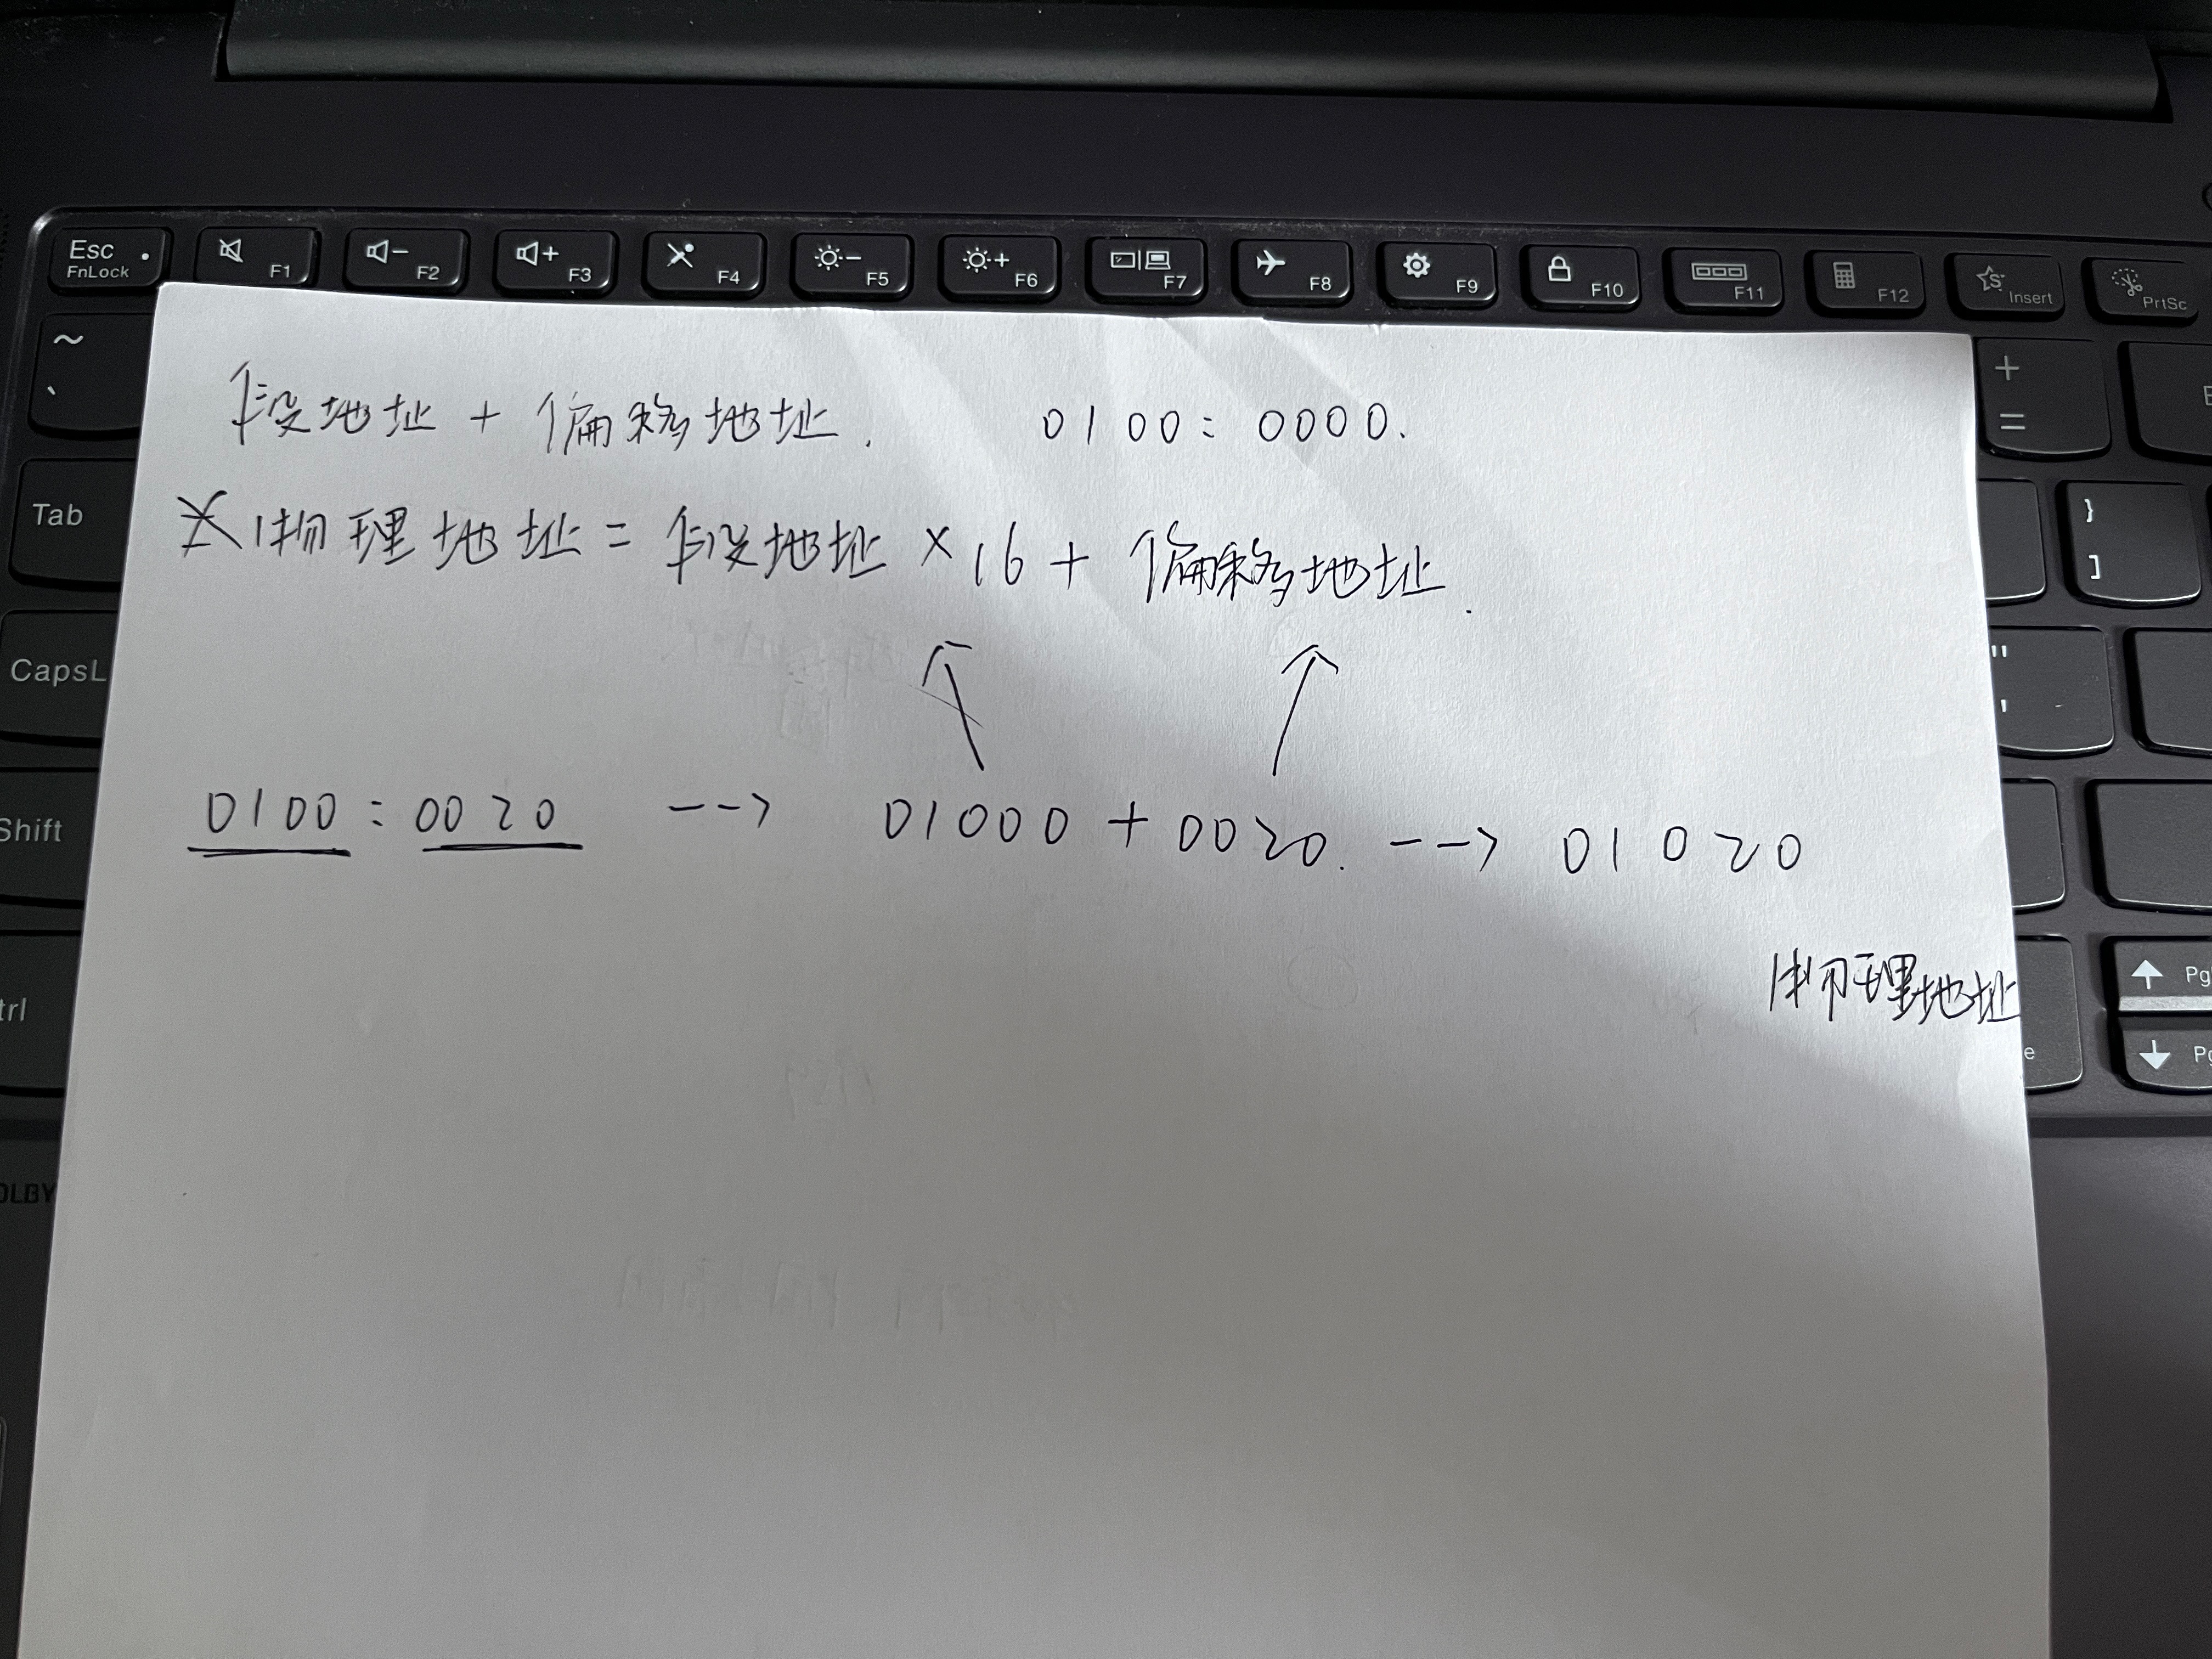 Esc FnLock F1 F2 F3 F4 F5 F6 F7 F8 F9 F10 F11 F12 Insert PrtSc
~
`
+
=
段地址 + 偏移地址. 0100: 0000.
Tab
}
]
物理地址 = 段地址 × 16 + 偏移地址.
CapsL
"
'
Shift
0100 : 0020 --> 01000 + 0020. --> 01020
物理地址
trl
Pg
e
Pg
OLBY